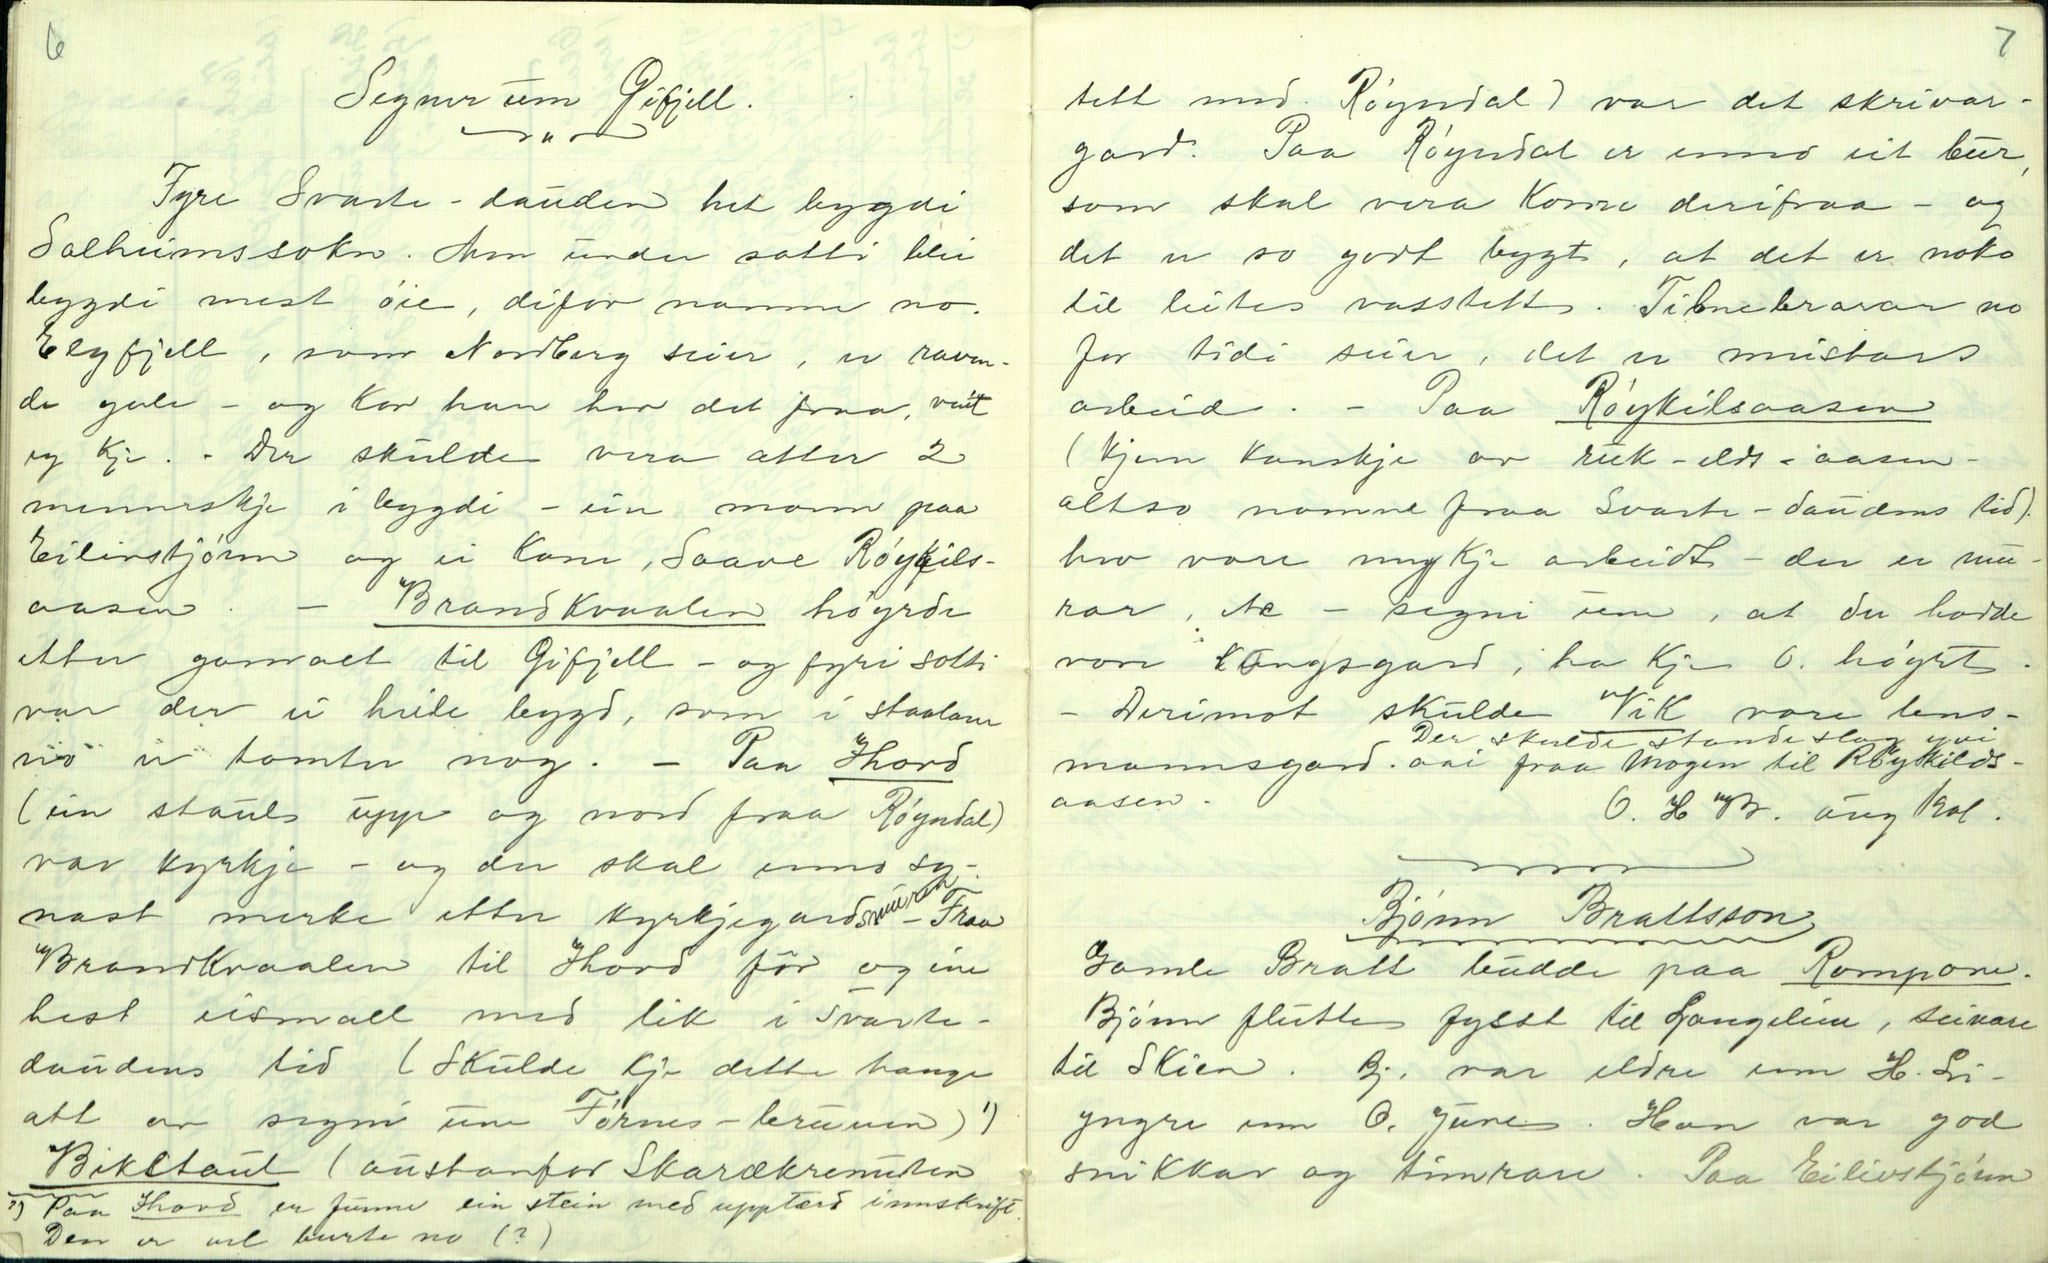 6
Segner um Gøfjell.
Fyre Svarte-dauden het bygdi
Solheimssokn. Men under sotti blei
bygdi mest öie, difor namne no.
Elgfjell, som Nordberg seier, er raven-
de gale - og kor han har det fraa, veit
eg kje. - Der skulde vera atter 2
menneskje i bygdi - ein mann paa
Eilivstjónn og ei kone, Saave Róykils-
aasen. - Brandkvaalen hóyrde
etter gamalt til Gøfjell - og fyri sotti
var der ei heile bygd, som i staalane
no er tomter nog. - Paa Hovd
(ein staul upp og nord fraa Róyndal)
var kyrkje - og der skal enno sy-
nast merke etter kyrkjegardsmuren - Fraa
Brandkvaalen til Hovd för og ein
hest eismall med lik i Svarte-
daudens tid (Skulde kje dette hange
att av segni um Förnes-brunen) ¹)
Bikstaul (austanfor Skarækrenuten
¹) Paa Hovd er funne ein stein med upptærd innskrift.
Den er vel burte no (?)
7
tett med Róyndal) var det skrivar-
gard. Paa Róyndal er enno eit bur,
som skal vera kome derifraa - og
det er so godt bygt, at det er noko
til leites vasstett. Timebrarar no
for tidi seier, det er meistars
arbeid. - Paa Róykilsaasen
(kjem kanskje av ruk-elds-aasen -
altso namne fraa Svarte-daudens tid)
hev vore mykje arbeidt - der er mu-
rar, etc - segni um, at der hadde
vore kongsgard, ha kje O. hóyrt.
- Derimot skulde Vik vore lens-
mannsgard. Der skulde stande slag yvi
aai fraa Mogen til Róykilds-
aasen.
O. H. B. aug 1201.
Bjónn Brattsson
Gamle Bratt budde paa Rompone.
Bjónn flutte fysst til Langelim, seinare
til Skien. Bj. var eldre enn H. Li -
yngre enn O. June. Han var god
snikkar og timrare. Paa Eilivstjónn